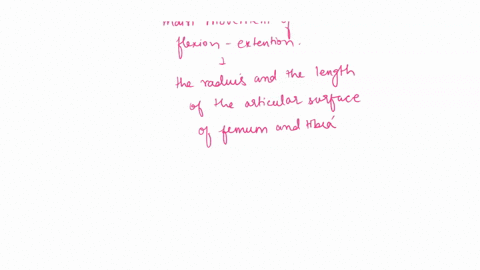 main movement of
flexion - extention.
↓
the raduis and the length
of the articular surface
of femum and tibia